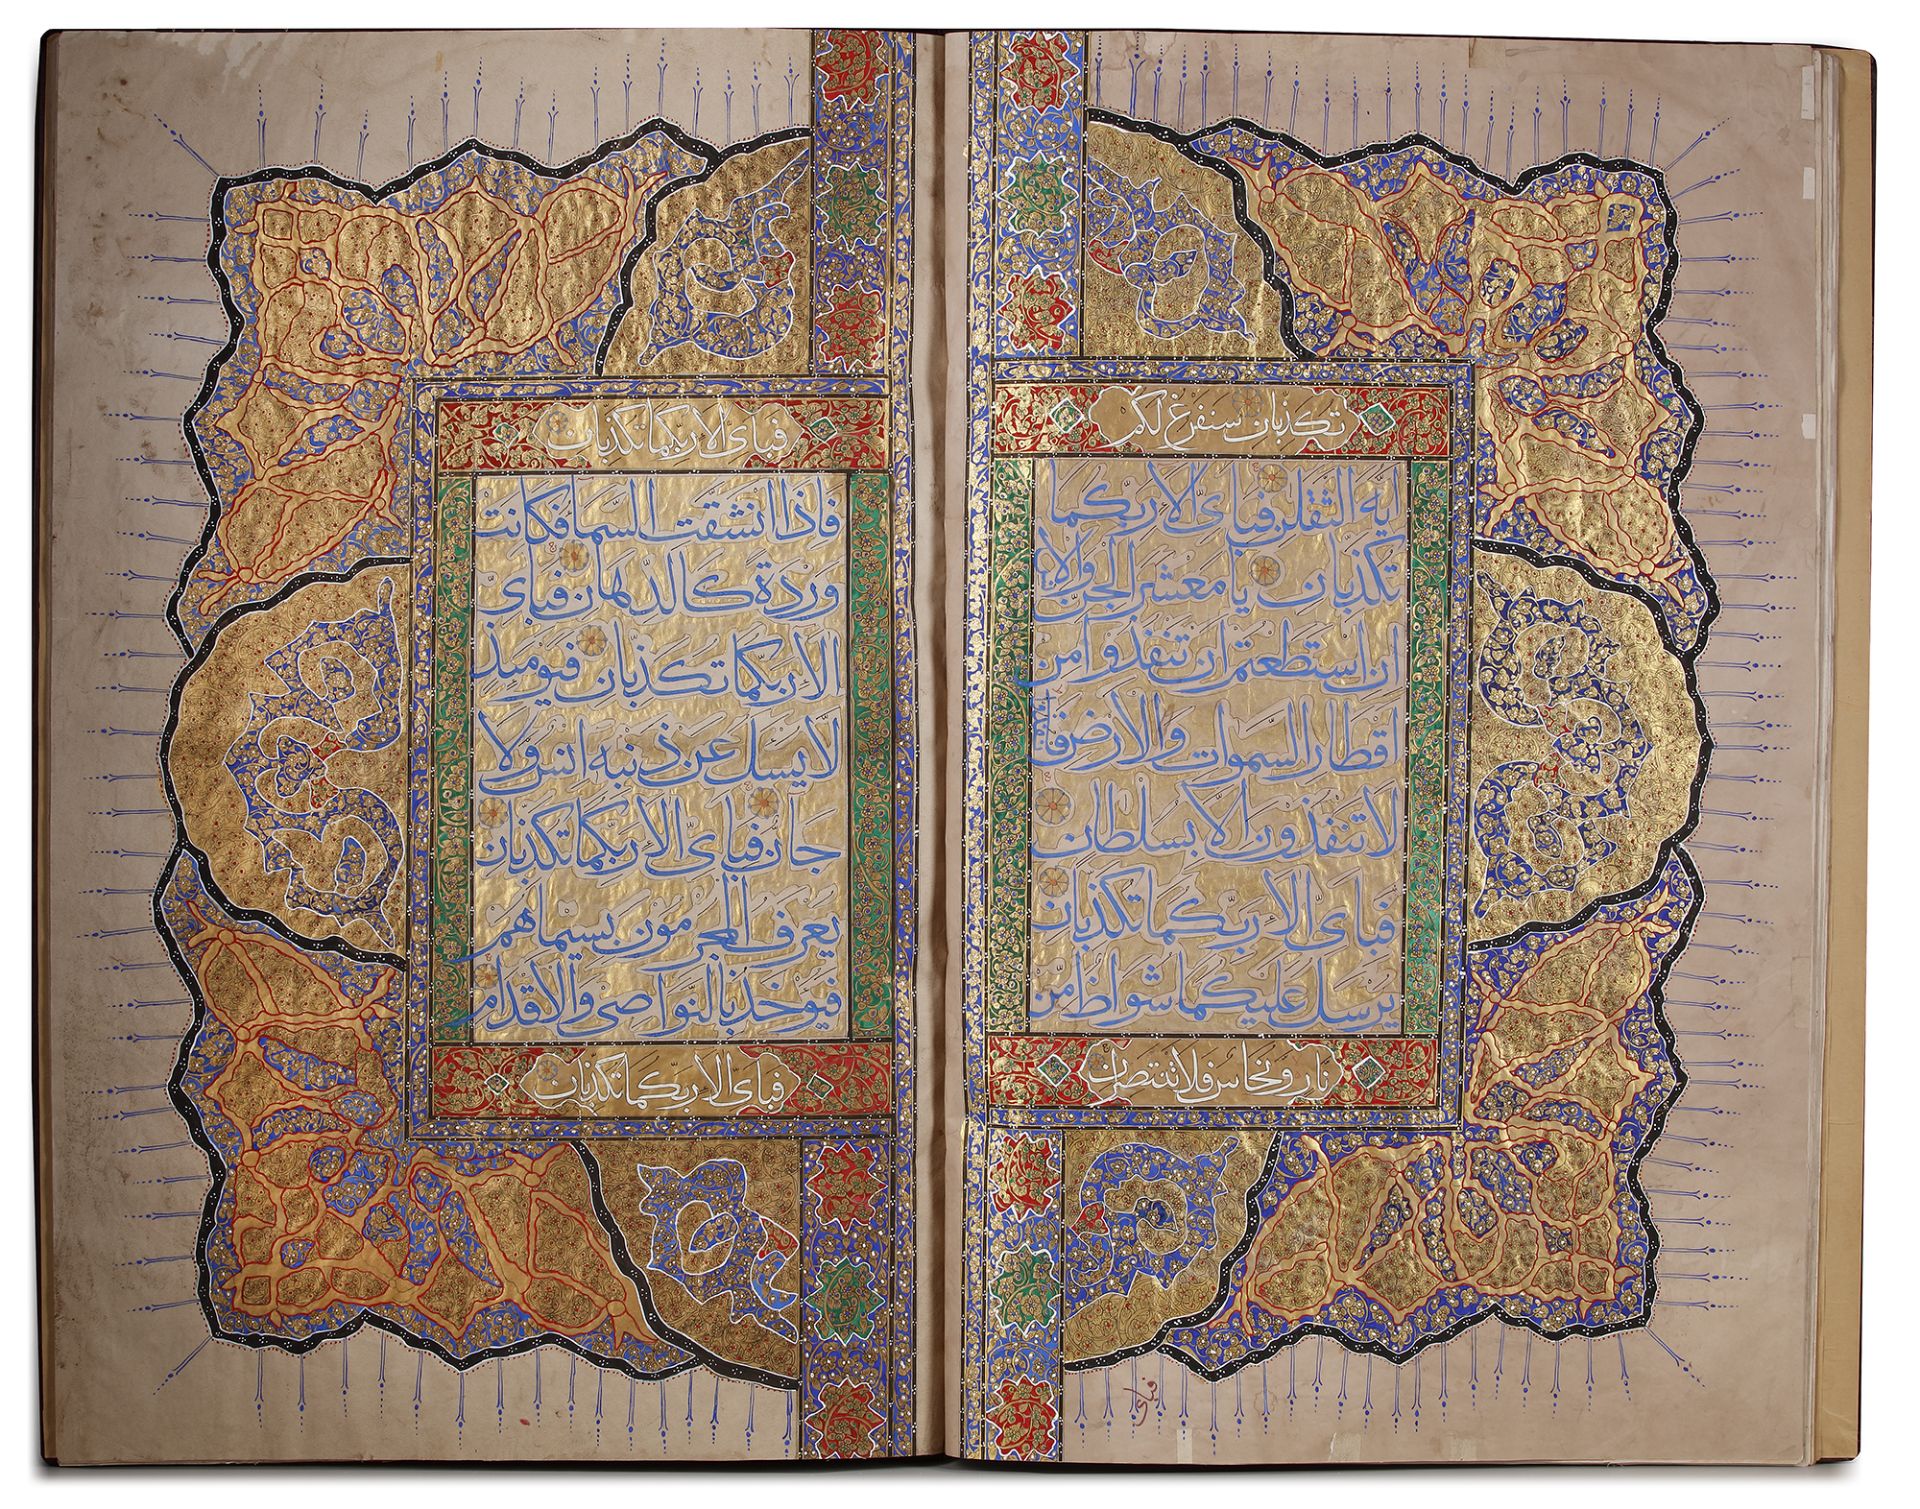 تكذبان سنفرغ لكم
ايه الثقلن فباىّ الاء ربكما
تكذبان يا معشر الجنّ والا
ان استطعتم ان تنفذوا من
اقطار السموات والارض فا
لا تنفذون الا بسلطان
فباىّ الاء ربكما تكذبان
يرسل عليكما شواظ من
نار ونحاس فلا تنتصران
فباى
فباى الاء ربكما تكذبان
فاذا انشقت السما فكانت
وردة كالدهان فباىّ
الاء ربكما تكذبان فيومئذ
لا يسل عن ذنبه انس ولا
جان فباىّ الاء ربكما تكذبان
يعرف المجرمون بسيماهم
فيوخذ بالنواصى والاقدام
فباىّ الاء ربكما تكذبان